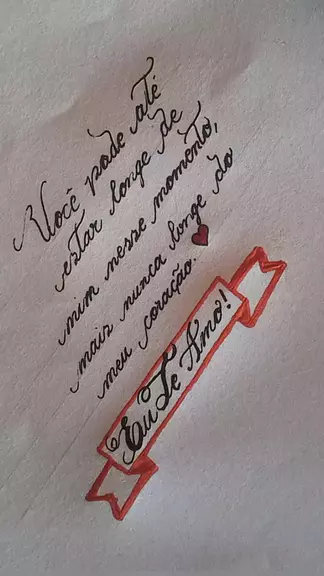 Você pode até
estar longe de
mim nesse momento,
mais nunca longe do
meu coração.
Eu Te Amo!